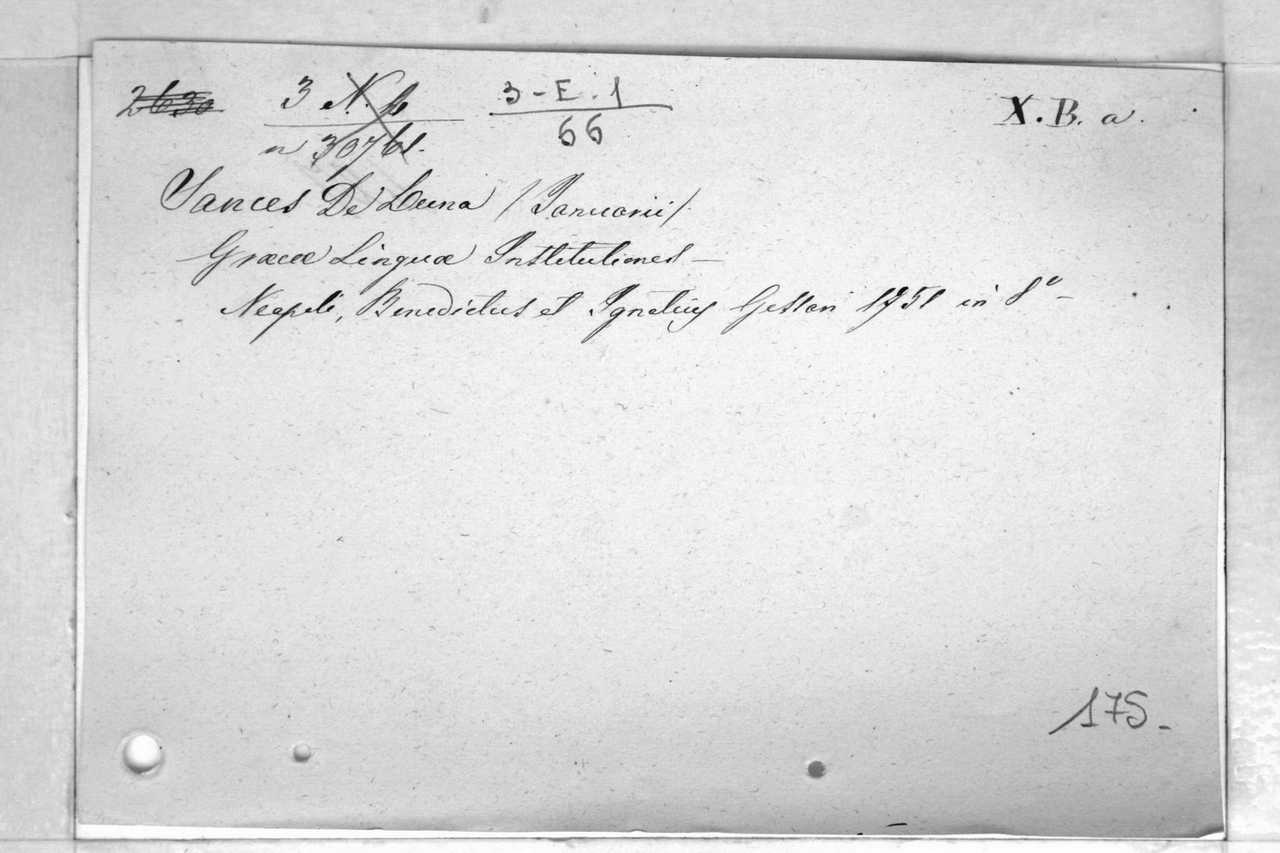 2630 3 N. b 3-E.1 X.B. a.
66
Sances De Luna (Januarii)
Græcæ Linguæ Institutiones —
Neapoli, Benedictus et Ignatius Gessari 1751 in 8° —
175-